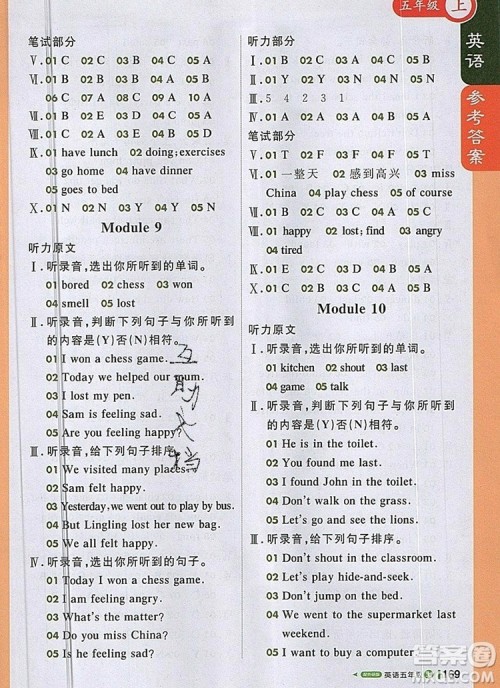 五年级 上
英语
参考答案
笔试部分
Ⅴ. 01 C 02 C 03 B 04 C 05 A
Ⅵ. 01 B 02 A 03 B 04 A 05 C
06 C 07 A 08 C 09 A 10 A
Ⅶ. 01 C 02 A 03 C 04 A 05 B
Ⅷ. 01 B 02 E 03 D 04 C 05 A
Ⅸ. 01 have lunch 02 doing; exercises
03 go home 04 have dinner
05 goes to bed
Ⅹ. 01 N 02 Y 03 N 04 Y 05 N
Module 9
听力原文
Ⅰ. 听录音,选出你所听到的单词。
01 bored 02 chess 03 won
04 smell 05 lost
Ⅱ. 听录音,判断下列句子与你所听到
的内容是(Y)否(N)相符。
01 I won a chess game.
02 Today we helped our mum.
03 I lost my pen.
04 Sam is feeling sad.
05 Are you feeling happy?
Ⅲ. 听录音,给下列句子排序。
01 We visited many places.
02 Sam felt happy.
03 Yesterday, we went out to play by bus.
04 But Lingling lost her new bag.
05 We all felt happy.
Ⅳ. 听录音,选出你所听到的句子。
01 Today I won a chess game.
02 I am feeling angry.
03 What's the matter?
04 Do you miss China?
05 Is he feeling sad?
互助文档
听力部分
Ⅰ. 01 B 02 A 03 B 04 C 05 A
Ⅱ. 01 Y 02 N 03 N 04 Y 05 N
Ⅲ. 5 4 2 3 1
Ⅳ. 01 A 02 B 03 B 04 A 05 A
笔试部分
Ⅴ. 01 B 02 C 03 A 04 C 05 B
Ⅵ. 01 T 02 F 03 T 04 F 05 T
Ⅶ. 01 一整天 02 感到高兴 03 miss
China 04 play chess 05 of course
Ⅷ. 01 happy 02 lost 03 find 04 angry
05 tired
Ⅸ. 01 E 02 C 03 D 04 B 05 A
Ⅹ. 01 C 02 B 03 B 04 C 05 A
Module 10
听力原文
Ⅰ. 听录音,选出你所听到的单词。
01 kitchen 02 shout 03 last
04 game 05 talk
Ⅱ. 听录音,判断下列句子与你所听到
的内容是(Y)否(N)相符。
01 He is in the toilet.
02 You found me last.
03 I found John in the toilet.
04 Don't walk on the grass.
05 Let's go and see lions.
Ⅲ. 听录音,给下列句子排序。
01 Don't shout in the classroom.
02 Let's play hide-and-seek.
03 Don't jump on the bed.
04 We went to the supermarket last
weekend.
05 I want to buy a computer.
英语五年级 上 169